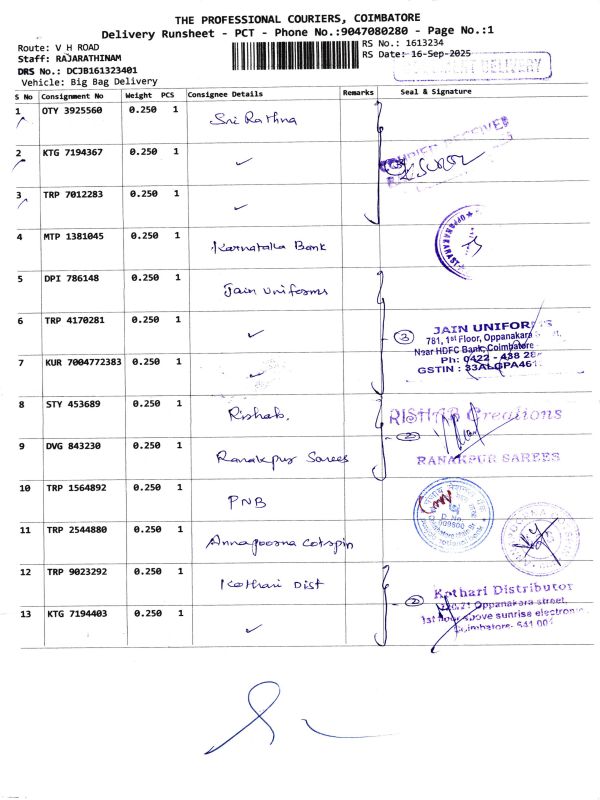 THE PROFESSIONAL COURIERS, COIMBATORE
Delivery Runsheet - PCT - Phone No.:9047080280 - Page No.:1
Route: V H ROAD
RS No.: 1613234
Staff: RAJARATHINAM
RS Date: 16-Sep-2025
DRS No.: DCJB161323401
Vehicle: Big Bag Delivery
DELIVERY
S No Consignment No Weight PCS Consignee Details Remarks Seal & Signature
1 OTY 3925560 0.250 1 Sri Rathna
2 KTG 7194367 0.250 1 ✓
3 TRP 7012283 0.250 1 ✓
4 MTP 1381045 0.250 1 Karnataka Bank
5 DPI 786148 0.250 1 Jain Uniforms
6 TRP 4170281 0.250 1 ✓
7 KUR 7004772383 0.250 1 ✓
3
JAIN UNIFORMS
781, 1st Floor, Oppanakara
Near HDFC Bank, Coimbatore
Ph: 0422 - 438
GSTIN : 33ALGPA461
8 STY 453689 0.250 1 Rishab.
RISHAB Creations
9 DVG 843230 0.250 1 Ranakpur Sarees
2
RANAKPUR SAREES
10 TRP 1564892 0.250 1 PNB
11 TRP 2544880 0.250 1 Annapoorna Cotspin
12 TRP 9023292 0.250 1 Kothari Dist
13 KTG 7194403 0.250 1 ✓
2
Kothari Distributor
Oppanakara street,
1st floor above sunrise electronic
Coimbatore- 641 001